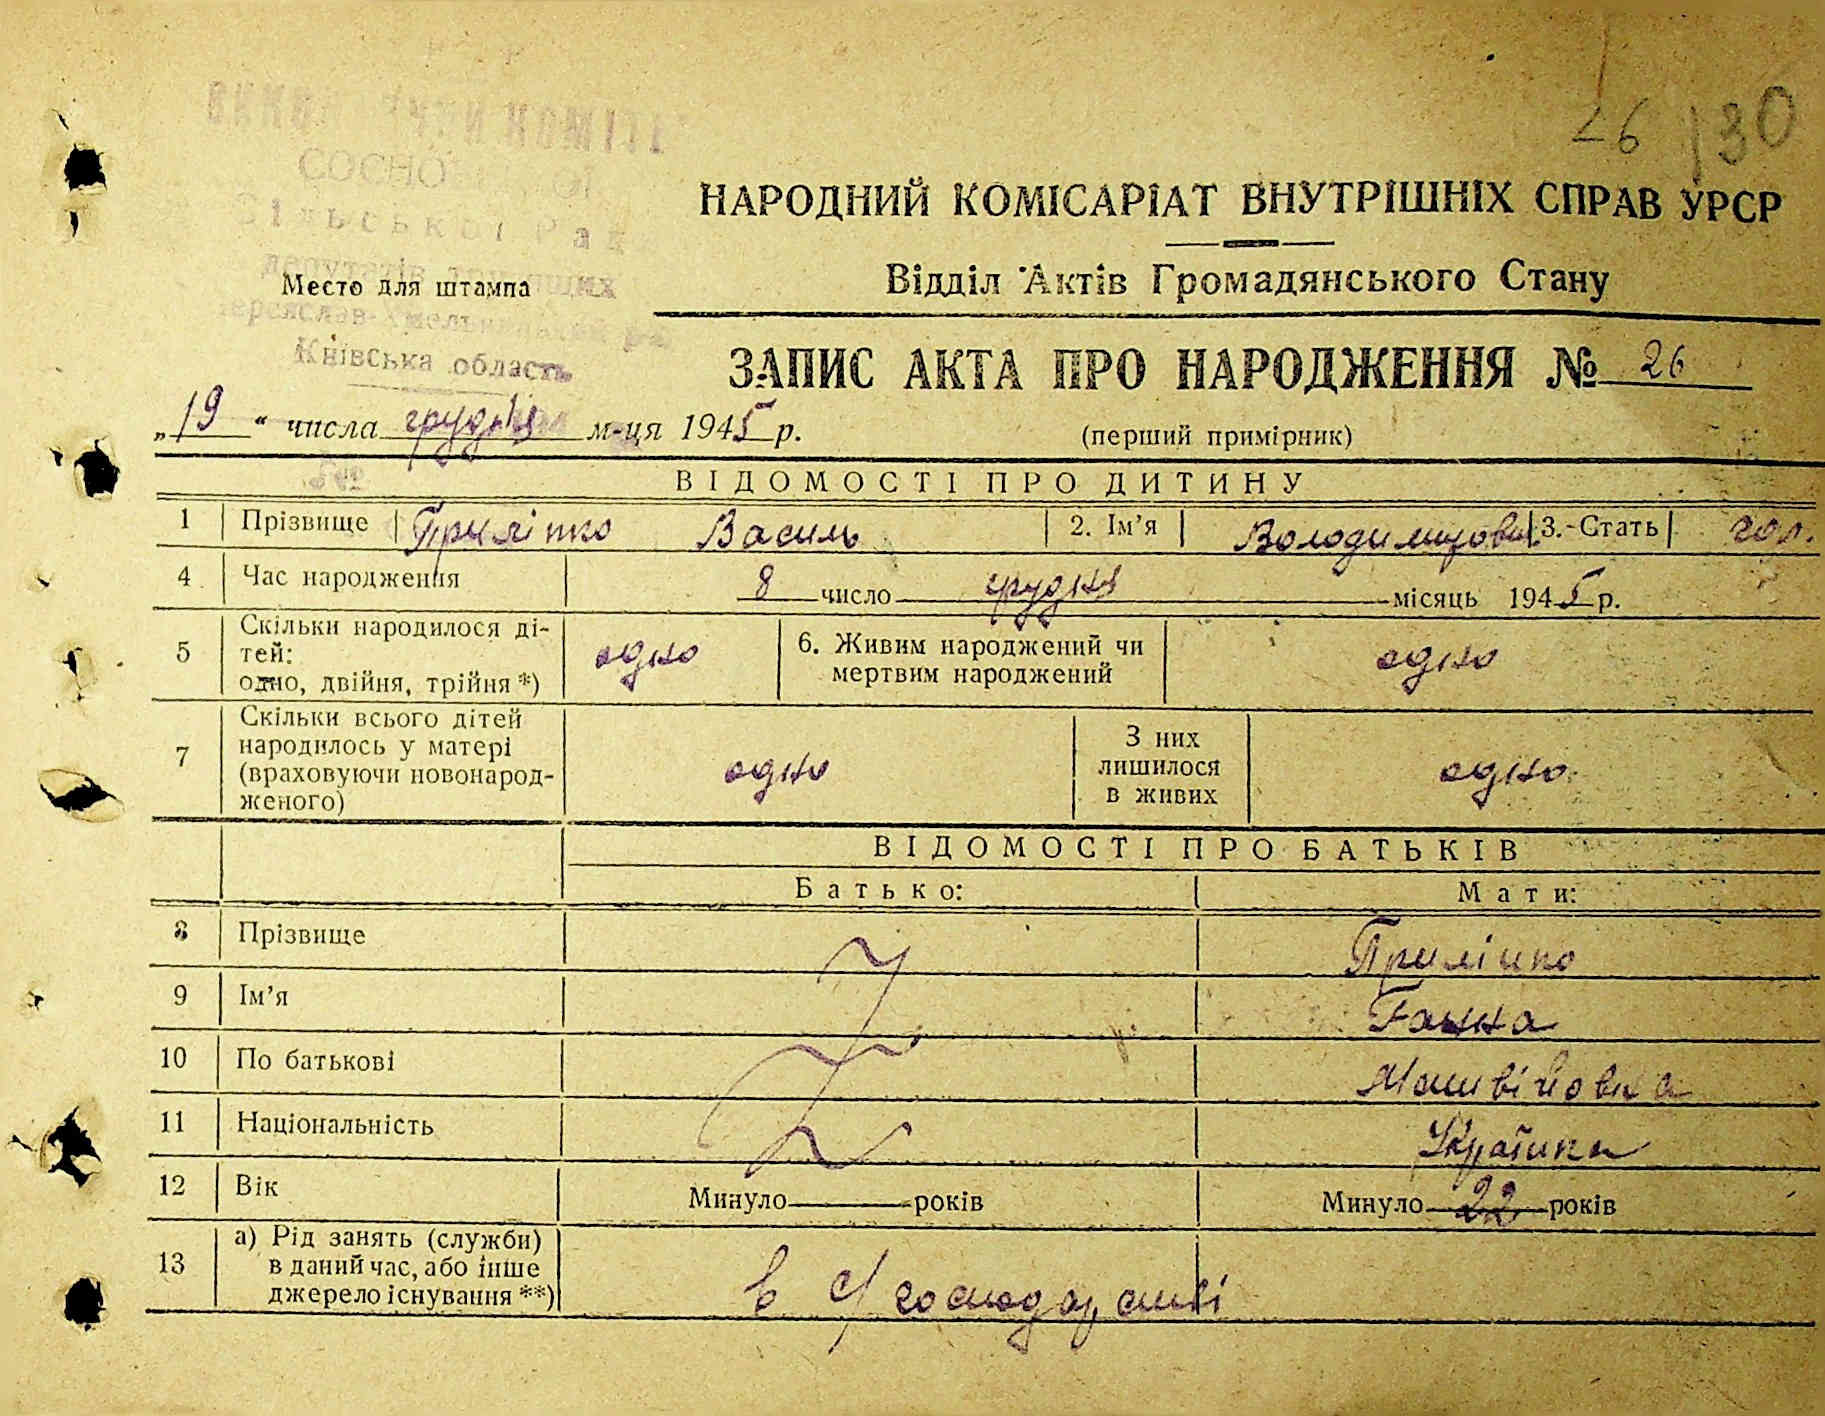 26 130
КОМІТ
СОСНО
Сільської Рад
депутатів трудящих
Переяслав-Хмельницький р-н
Київська область
Место для штампа
НАРОДНИЙ КОМІСАРІАТ ВНУТРІШНІХ СПРАВ УРСР
Відділ Актів Громадянського Стану
ЗАПИС АКТА ПРО НАРОДЖЕННЯ № 26
„19“ числа грудня м-ця 1945 р.
(перший примірник)
ВІДОМОСТІ ПРО ДИТИНУ
1 Прізвище Приліпко Василь 2. Ім’я Володимирович 3. Стать чол.
4 Час народження 8 число грудня місяць 1945 р.
5 Скільки народилося ді-
тей:
одно, двійня, трійня *) одно 6. Живим народжений чи
мертвим народжений одно
7 Скільки всього дітей
народилось у матері
(враховуючи новонарод-
женого) одно З них
лишилося
в живих одно
ВІДОМОСТІ ПРО БАТЬКІВ
Батько: Мати:
8 Прізвище Приліпко
9 Ім’я Ганна
10 По батькові Матвійовна
11 Національність Українка
12 Вік Минуло років Минуло 22 років
13 а) Рід занять (служби)
в даний час, або інше
джерело існування **) в с/господарстві